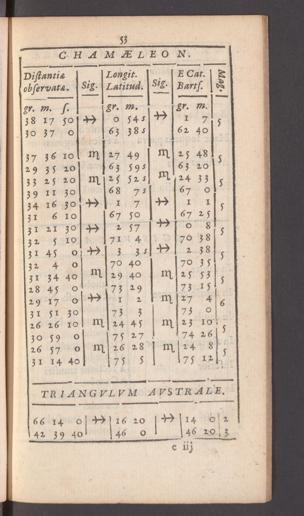 53
CHAMÆLEON.
Distantiæ observatæ. Sig. Longit. Latitud. Sig. E Cat. Barts. Mag.
gr. m. s. gr. m. gr. m.
38 17 50 ♐ 0 54 s ♐ 1 7 5
30 37 0 63 38 s 62 40
37 36 10 ♏ 27 49 ♏ 25 48 5
29 35 20 63 59 s 63 20
33 25 20 ♏ 25 52 s ♏ 24 33 5
39 11 30 68 7 s 67 0
34 16 30 ♐ 1 7 ♐ 1 1 5
31 6 10 67 50 67 25
31 21 30 ♐ 2 57 ♐ 0 8 5
32 5 10 71 4 70 38
31 45 0 ♐ 3 3 s ♐ 2 38 5
32 4 0 70 40 70 35
31 34 40 ♏ 29 40 ♏ 25 53 5
28 45 0 73 29 73 15
29 17 0 ♐ 1 2 ♏ 27 4 6
31 51 30 73 3 73 0
26 26 10 ♏ 24 45 ♏ 23 10 5
30 59 0 75 27 74 26
26 57 0 ♏ 26 28 ♏ 24 8 5
31 14 40 75 5 75 12
TRIANGVLVM AVSTRALE.
66 14 0 ♐ 16 20 ♐ 14 0 2
42 39 40 46 0 46 20 3
e iij